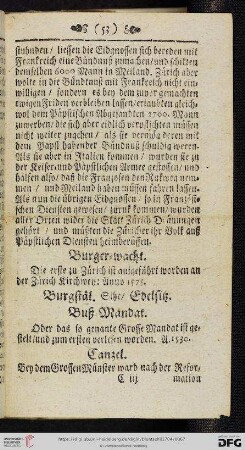 ( 53 )
stuhnden / liessen die Eidgnossen sich bereden mit
Frankreich eine Bündnuß zumachen / und schikten
demselben 6000 Mann in Meiland. Zürich aber
wolte in die Bündtnuß mit Frankreich nicht ein
willigen / sondern es bey dem zuvor gemachten
ewigen Friden verbleiben lassen / erlaubten gleich
wol dem Päpstischen Abgesandten 2700. Mann
zuwerben / die sich aber eidlich verpflichten müssen
nicht weiter zugehen / als sie vermög deren mit
dem Papst habender Bündnuß schuldig weren.
Als sie aber in Italien kommen / wurden sie zu
der Keiser und Päpstlichen Armee gestossen / und
halfen also / daß die Franzosen den Rukweg nem
men / und Meiland haben müssen fahren lassen.
Als nun die übrigen Eidgnossen / so in Franzö-
sischen Diensten gewesen / zuruk kommen / wurden
aller Orten wider die Statt Zürich Dräuungen
gehört / und müßten die Züricher ihr Volk auß
Päpstlichen Diensten heimberüffen.
Burger-wacht.
Die erste zu Zürich ist angeführt worden an
der Zürich Kirchwey: Anno 1575.
Burgstäl. Sihe / Edelsitz.
Buß Mandat.
Oder das so genante Grosse Mandat ist ge-
stelt / und zum ersten verlesen worden. A. 1530.
Canzel.
Bey dem Grossen Münster ward nach der Refor-
C iij mation